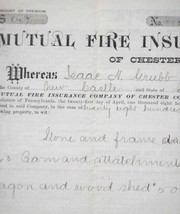 MUTUAL FIRE INSU
OF CHESTER
Whereas Isaac N. Grubb
the County of New Castle and State of
MUTUAL FIRE INSURANCE COMPANY OF CHESTER CO
islature of Pennsylvania, the twenty-first day of April, one thousand eight hund
in said Company, in the sum of twenty eight hundred
wing property, to wit:
Stone and frame dw
Barn and attatchments
agon and wood shed